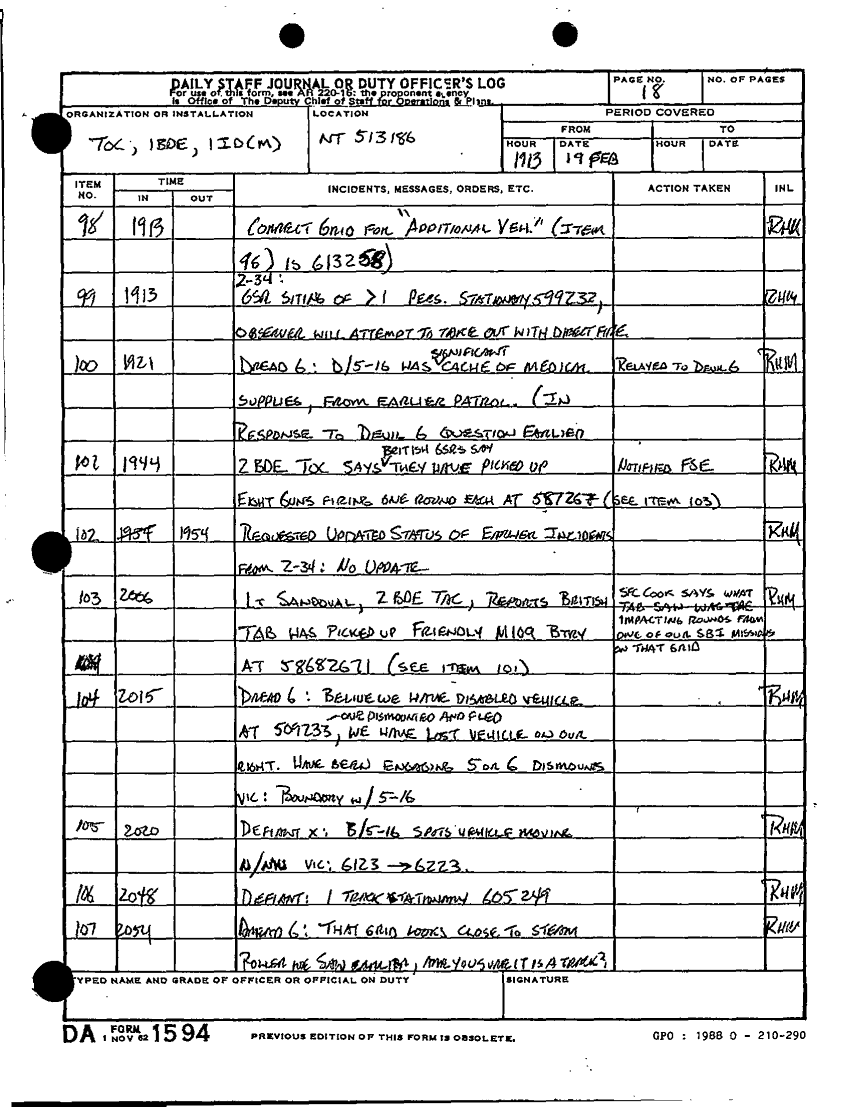 DAILY STAFF JOURNAL OR DUTY OFFICER'S LOG
For use of this form, see AR 220-15: the proponent agency
is Office of The Deputy Chief of Staff for Operations & Plans.
PAGE NO.
18
NO. OF PAGES
ORGANIZATION OR INSTALLATION
TOC, 1BDE, 1ID(M)
LOCATION
NT 513186
PERIOD COVERED
FROM TO
HOUR DATE HOUR DATE
1913 19 FEB
ITEM NO. TIME IN OUT INCIDENTS, MESSAGES, ORDERS, ETC. ACTION TAKEN INL
98 1913 CORRECT GRID FOR "ADDITIONAL VEH." (ITEM RHM
96) IS 613258)
2-34:
99 1913 GSR SITING OF >1 PERS. STATIONARY 599232, RHM
OBSERVER WILL ATTEMPT TO TAKE OUT WITH DIRECT FIRE.
SIGNIFICANT
100 1921 DREAD 6: D/5-16 HAS CACHE OF MEDICAL RELAYED TO DEVIL 6 RHM
SUPPLIES, FROM EARLIER PATROL. (IN
RESPONSE TO DEVIL 6 QUESTION EARLIER
BRITISH GSRS SAY
101 1944 2 BDE TOC SAYS THEY HAVE PICKED UP NOTIFIED FSE RHM
EIGHT GUNS FIRING ONE ROUND EACH AT 587267 (SEE ITEM 103)
102 1954 1954 REQUESTED UPDATED STATUS OF EARLIER INCIDENTS RHM
FROM 2-34: NO UPDATE
103 2006 LT SANDOVAL, 2 BDE TAC, REPORTS BRITISH SFC COOK SAYS WHAT RHM
TAB HAS PICKED UP FRIENDLY M109 BTRY TAB SAW WAS THE
IMPACTING ROUNDS FROM
ONE OF OUR SBI MISSIONS
ON THAT GRID
AT 58682671 (SEE ITEM 101)
104 2015 DREAD 6: BELIVE WE HAVE DISABLED VEHICLE RHM
ONE DISMOUNTED AND FLED
AT 509233, WE HAVE LOST VEHICLE ON OUR
RIGHT. HAVE BEEN ENGAGING 5 OR 6 DISMOUNTS
VIC: BOUNDARY W/5-16
105 2020 DEFIANT X: B/5-16 SPOTS VEHICLE MOVING RHM
N/NW VIC: 6123 → 6223.
106 2048 DEFIANT: 1 TRACK STATIONARY 605249 RHM
107 2054 DREAD 6: THAT GRID LOOKS CLOSE TO STEAM RHM
ROLLER WE SAW EARLIER, ARE YOU SURE IT IS A TRACK?
TYPED NAME AND GRADE OF OFFICER OR OFFICIAL ON DUTY SIGNATURE
DA FORM 1 NOV 62 1594 PREVIOUS EDITION OF THIS FORM IS OBSOLETE. GPO : 1988 O - 210-290